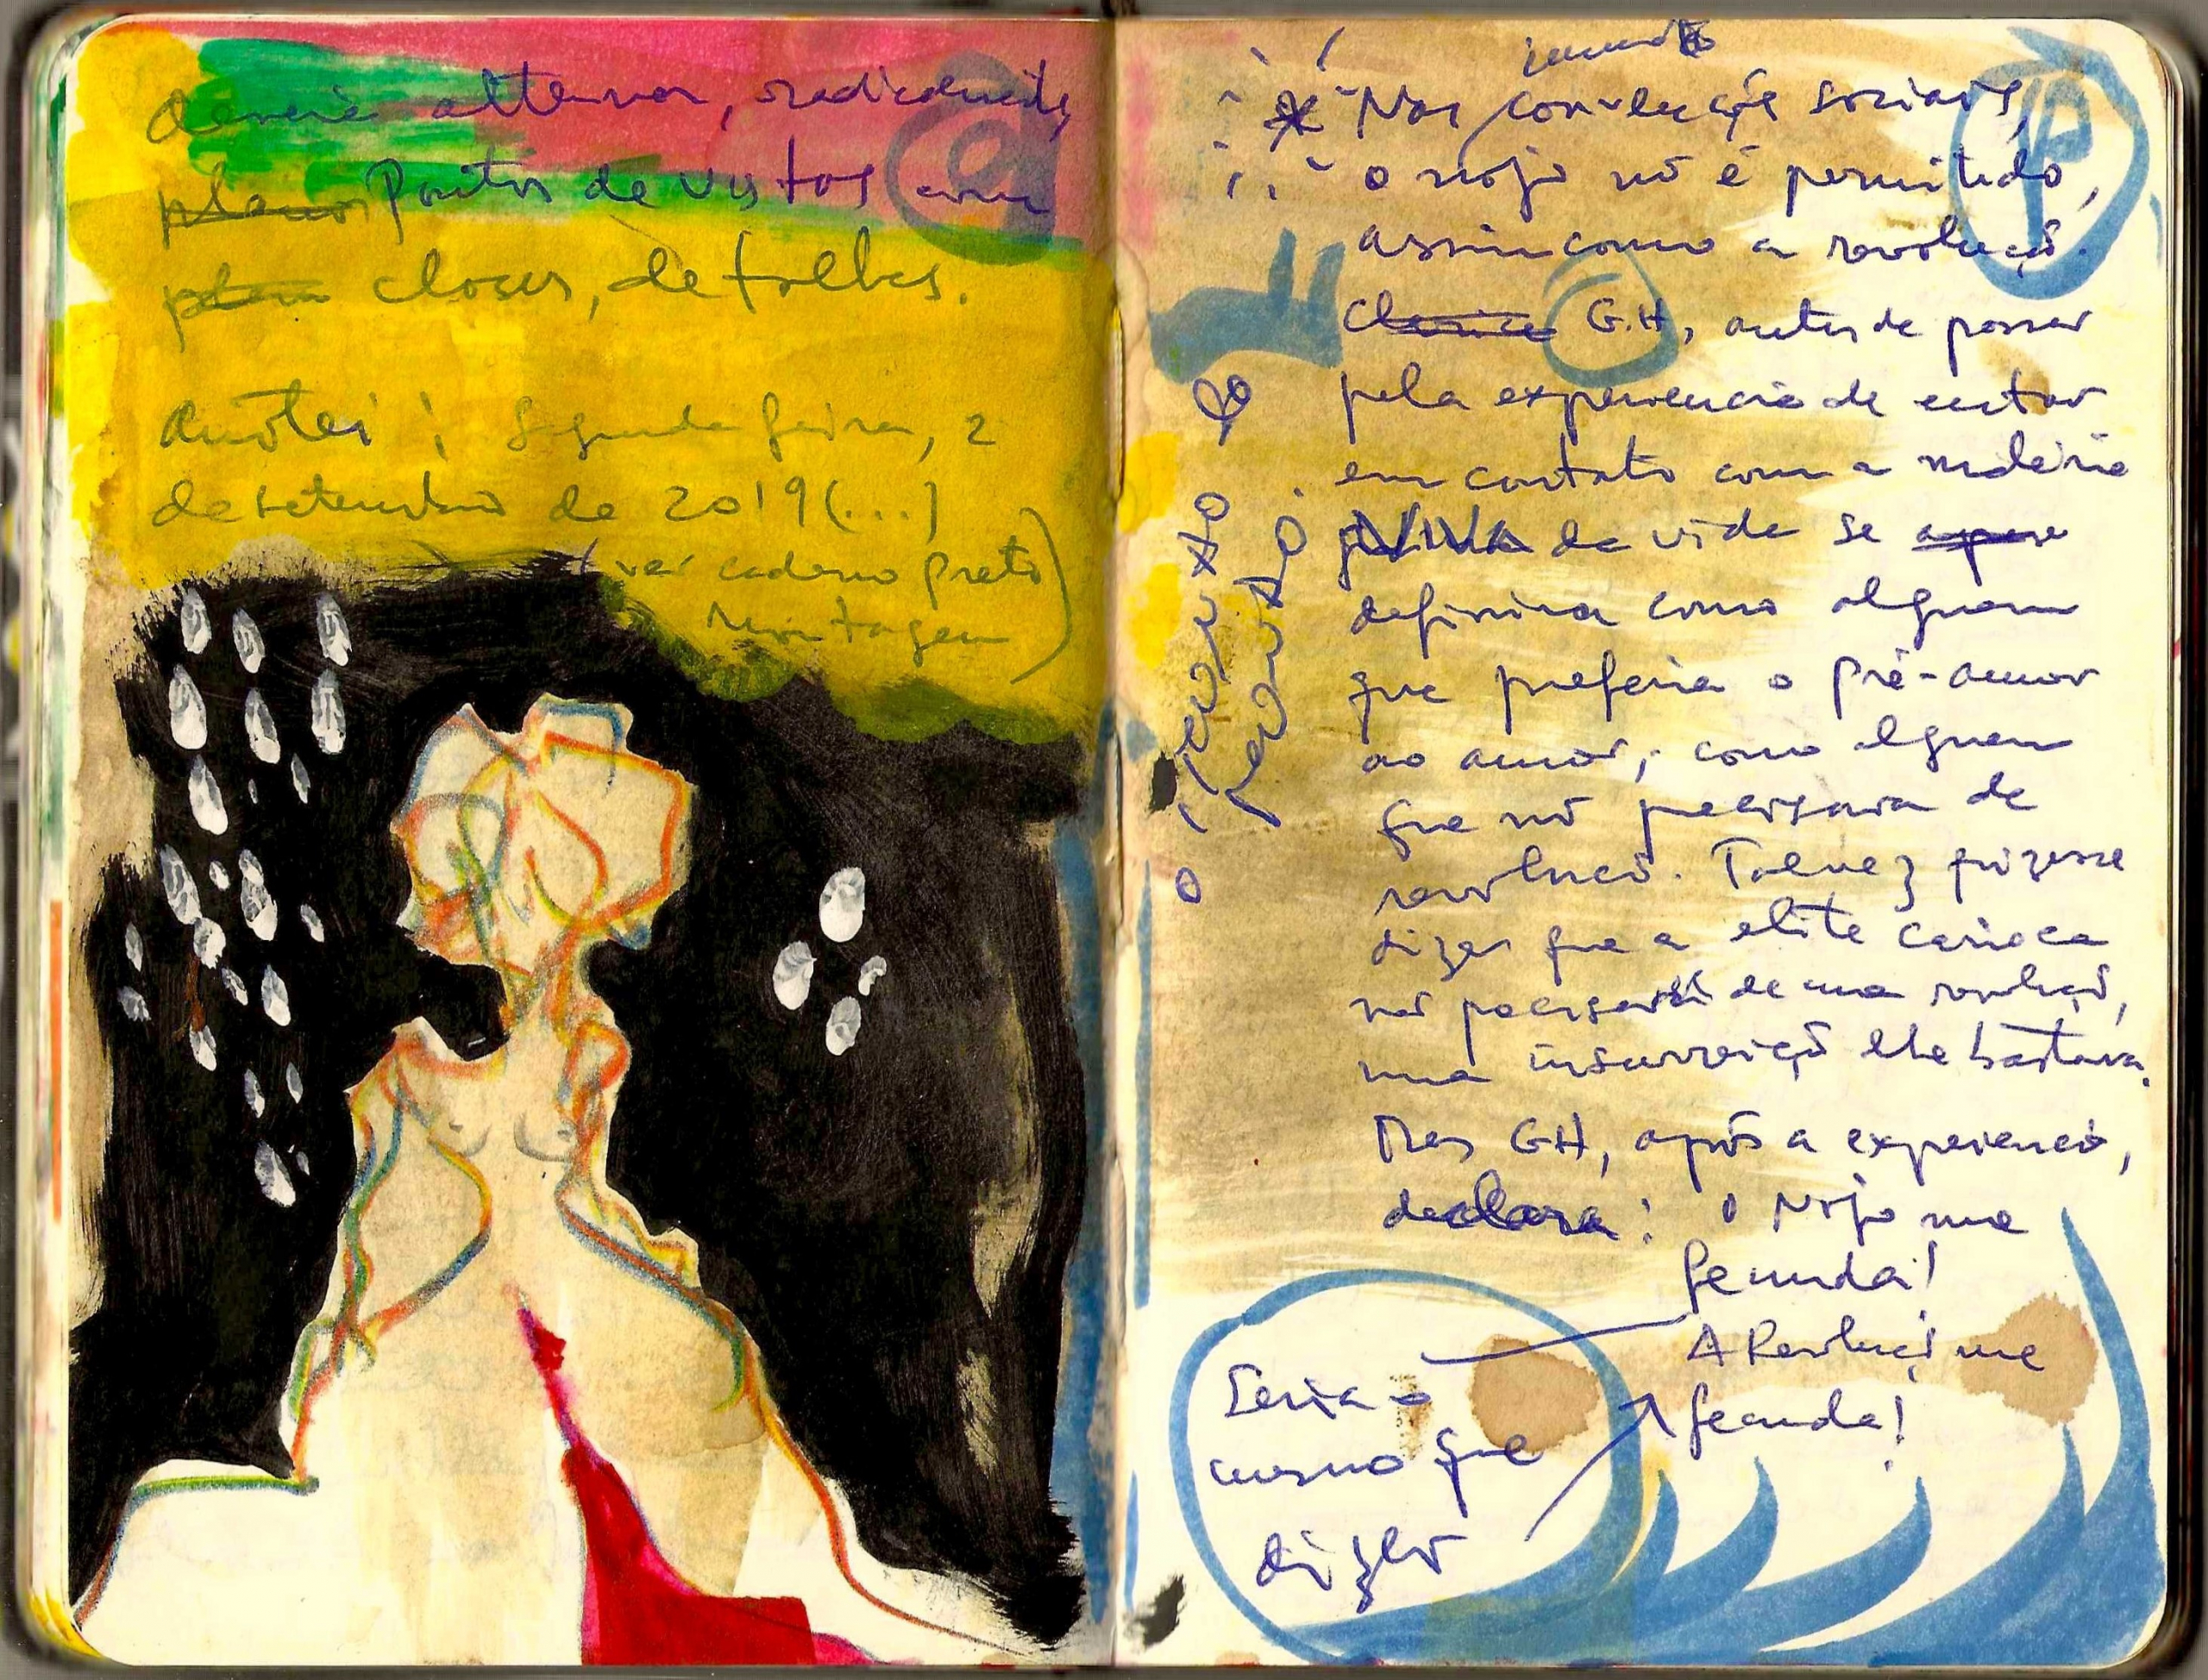 deveria alternar, radicalmente,
planos Pontos de vistas com
plan closes, detalhes.
Anotei: Segunda feira, 2
de setembro de 2019 (...)
(ver caderno preto
Montagem)
* Nas convenções sociais,
o nojo nõ é permitido,
assim como a revoluçõ.
Clarice G.H, antes de passar
pela experiencia de entrar
em contato com a matéria
VIVA da vida se
definira como alguem
que preferia o pré-amor
ao amor; como alguem
que nõ precisava de
revoluçõ. Talvez quizesse
dizer que a elite carioca
nõ precisava de uma revoluçõ,
uma insurreiçõ lhe bastava.
Mas GH, após a experiencia,
declara: O Nojo me
fecunda!
A Revoluçõ me
fecunda!
Seria o
mesmo que
dizer